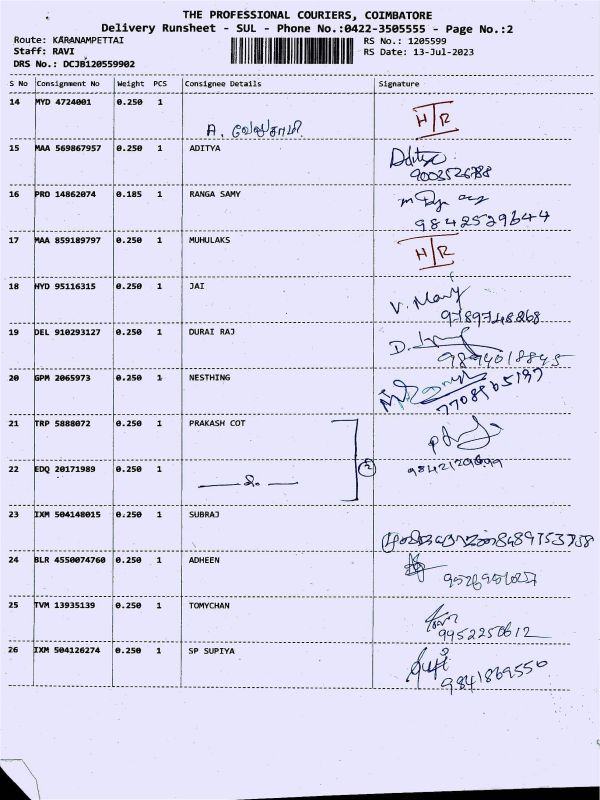 THE PROFESSIONAL COURIERS, COIMBATORE
Delivery Runsheet - SUL - Phone No.:0422-3505555 - Page No.:2
Route: KARANAMPETTAI RS No.: 1205599
Staff: RAVI RS Date: 13-Jul-2023
DRS No.: DCJB120559902
S No Consignment No Weight PCS Consignee Details Signature
14 MYD 4724001 0.250 1 H/R
A. வேலுசாமி
15 MAA 569867957 0.250 1 ADITYA Aditya
9003526788
16 PRO 14862074 0.185 1 RANGA SAMY
9842529644
17 MAA 859189797 0.250 1 MUHULAKS H/R
18 HYD 95116315 0.250 1 JAI V. Mary
9789748268
19 DEL 910293127 0.250 1 DURAI RAJ D.
9894018845
20 GPM 2065973 0.250 1 NESTHING
7708965197
21 TRP 5888072 0.250 1 PRAKASH COT
22 EDQ 20171989 0.250 1 2
23 IXM 504148015 0.250 1 SUBRAJ
8489753758
24 BLR 4550074760 0.250 1 ADHEEN
25 TVM 13935139 0.250 1 TOMYCHAN
9952250612
26 IXM 504126274 0.250 1 SP SUPIYA
9841869550